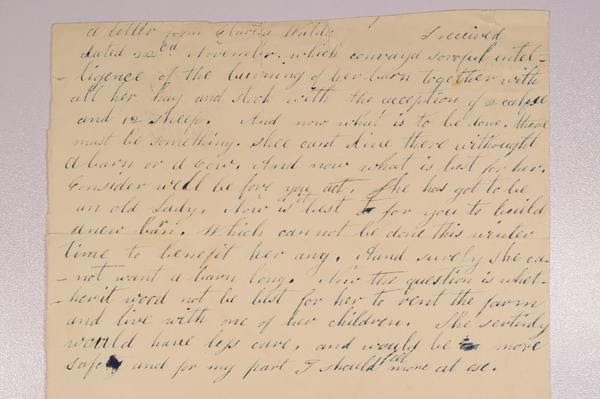 I received
a letter from Clarisa
dated 22ed November. which convayd soroful intel-
-ligence of the burning of her barn together with
all her hay and stock with the acception of 2 calvse
and 12 sheep. And now what is to be done. there
must be something. Shee cant live there withought
a barn or a cow. And now what is best for her.
Consider well be fore you act. She has got to be
an old Lady. Now is it best for you to build
a new barn. Which can not be done this winter
time to benefit her any. Aand surely she ca-
-not want a barn long. Now the question is whet-
-her it wood not be best for her to rent the farm
and live with one of her children. She sertinly
would have less care. and would be more
safe and for my part I should feel more at ese.